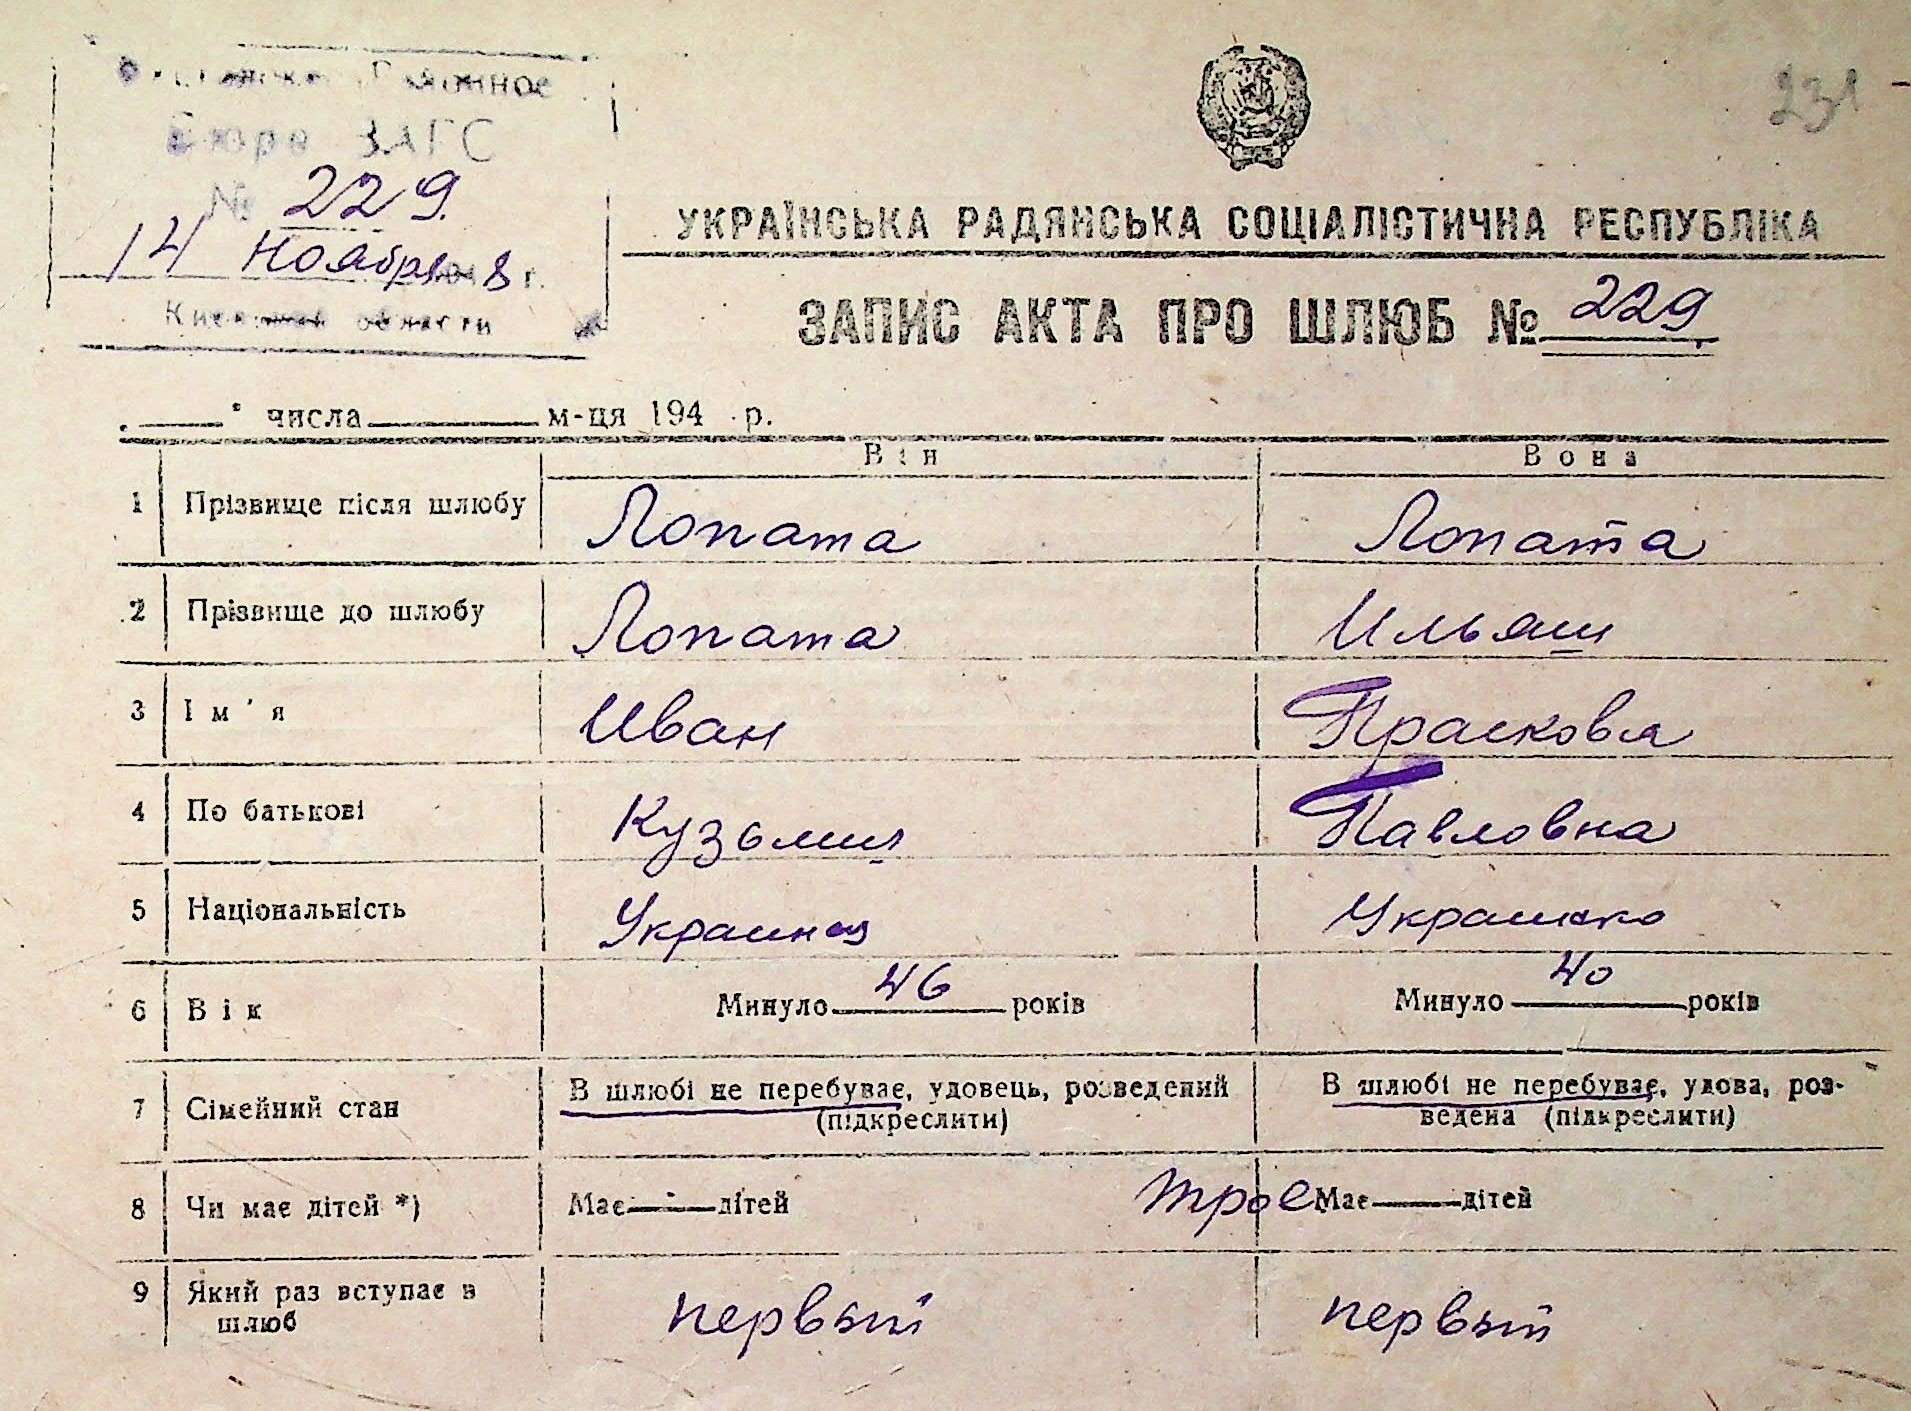 Районное
Бюро ЗАГС
№ 229.
14 Ноября 8 г.
области
231
УКРАЇНСЬКА РАДЯНСЬКА СОЦІАЛІСТИЧНА РЕСПУБЛІКА
ЗАПИС АКТА ПРО ШЛЮБ № 229
числа м-ця 194 р.
Він Вона
1 Прізвище після шлюбу Лопата Лопата
2 Прізвище до шлюбу Лопата Ильяш
3 Ім'я Иван Прасковя
4 По батькові Кузьмич Павловна
5 Національність Украинец Украинка
6 Вік Минуло 46 років Минуло 40 років
7 Сімейний стан В шлюбі не перебуває, удовець, розведений (підкреслити) В шлюбі не перебуває, удова, роз-ведена (підкреслити)
8 Чи має дітей *) Має дітей трое Має дітей
9 Який раз вступає в шлюб первый первый